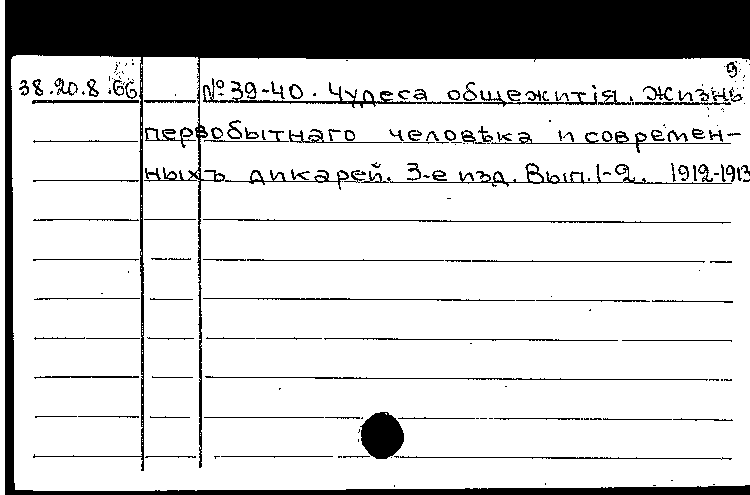 9
38.20.8.66 № 39-40. Чудеса общежитія. Жизнь
первобытнаго человѣка и современ-
ныхъ дикарей. 3-е изд. Вып. 1-2. 1912-1913